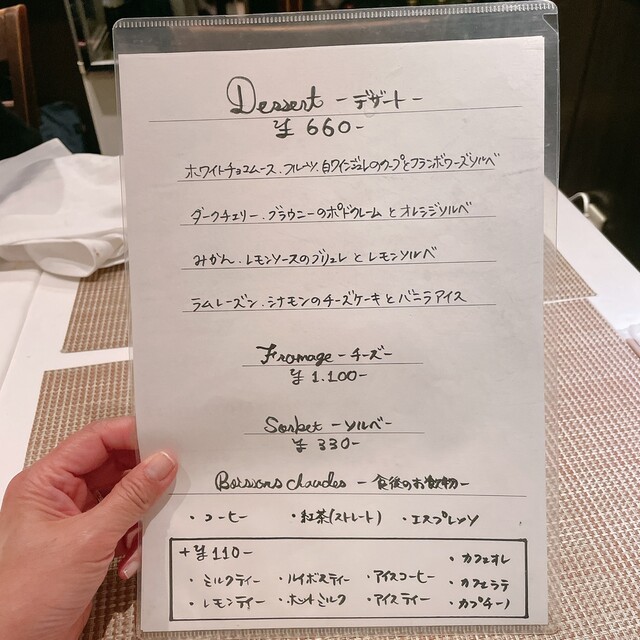 Dessert －デザート－
¥660-
ホワイトチョコムース、フルーツ、白ワインジュレのクープとフランボワーズソルベ
ダークチェリー、ブラウニーのポドクレームとオレンジソルベ
みかん、レモンソースのブリュレとレモンソルベ
ラムレーズン、シナモンのチーズケーキとバニラアイス
Fromage －チーズ－
¥1.100-
Sorbet －ソルベ－
¥330-
Boissons chaudes －食後のお飲物－
・コーヒー ・紅茶(ストレート) ・エスプレッソ
+¥110-
・カフェオレ
・ミルクティー ・ルイボスティー ・アイスコーヒー ・カフェラテ
・レモンティー ・ホットミルク ・アイスティー ・カプチーノ